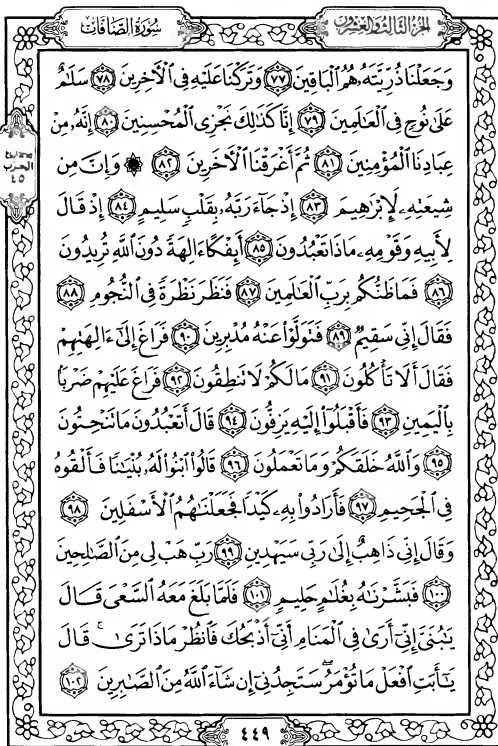 سُورَةُ الصَّافَّاتِ
الجُزءُ الثَّالِثُ وَالعِشْرُونَ
وَجَعَلْنَا ذُرِّيَّتَهُۥ هُمُ ٱلْبَاقِينَ ٧٧ وَتَرَكْنَا عَلَيْهِ فِى ٱلْأَخِرِينَ ٧٨ سَلَٰمٌ
عَلَىٰ نُوحٍ فِى ٱلْعَٰلَمِينَ ٧٩ إِنَّا كَذَٰلِكَ نَجْزِى ٱلْمُحْسِنِينَ ٨٠ إِنَّهُۥ مِنْ
عِبَادِنَا ٱلْمُؤْمِنِينَ ٨١ ثُمَّ أَغْرَقْنَا ٱلْأَخَرِينَ ٨٢ ۞ وَإِنَّ مِن
شِيعَتِهِۦ لَإِبْرَٰهِيمَ ٨٣ إِذْ جَآءَ رَبَّهُۥ بِقَلْبٍ سَلِيمٍ ٨٤ إِذْ قَالَ
لِأَبِيهِ وَقَوْمِهِۦ مَاذَا تَعْبُدُونَ ٨٥ أَئِفْكًا ءَالِهَةً دُونَ ٱللَّهِ تُرِيدُونَ
٨٦ فَمَا ظَنُّكُم بِرَبِّ ٱلْعَٰلَمِينَ ٨٧ فَنَظَرَ نَظْرَةً فِى ٱلنُّجُومِ ٨٨
فَقَالَ إِنِّى سَقِيمٌ ٨٩ فَتَوَلَّوْا۟ عَنْهُ مُدْبِرِينَ ٩٠ فَرَاغَ إِلَىٰٓ ءَالِهَتِهِمْ
فَقَالَ أَلَا تَأْكُلُونَ ٩١ مَا لَكُمْ لَا تَنطِقُونَ ٩٢ فَرَاغَ عَلَيْهِمْ ضَرْبًۢا
بِٱلْيَمِينِ ٩٣ فَأَقْبَلُوٓا۟ إِلَيْهِ يَزِفُّونَ ٩٤ قَالَ أَتَعْبُدُونَ مَا تَنْحِتُونَ
٩٥ وَٱللَّهُ خَلَقَكُمْ وَمَا تَعْمَلُونَ ٩٦ قَالُوا۟ ٱبْنُوا۟ لَهُۥ بُنْيَٰنًا فَأَلْقُوهُ
فِى ٱلْجَحِيمِ ٩٧ فَأَرَادُوا۟ بِهِۦ كَيْدًا فَجَعَلْنَٰهُمُ ٱلْأَسْفَلِينَ ٩٨
وَقَالَ إِنِّى ذَاهِبٌ إِلَىٰ رَبِّى سَيَهْدِينِ ٩٩ رَبِّ هَبْ لِى مِنَ ٱلصَّٰلِحِينَ
١٠٠ فَبَشَّرْنَٰهُ بِغُلَٰمٍ حَلِيمٍ ١٠١ فَلَمَّا بَلَغَ مَعَهُ ٱلسَّعْىَ قَالَ
يَٰبُنَىَّ إِنِّىٓ أَرَىٰ فِى ٱلْمَنَامِ أَنِّىٓ أَذْبَحُكَ فَٱنظُرْ مَاذَا تَرَىٰ ۚ قَالَ
يَٰٓأَبَتِ ٱفْعَلْ مَا تُؤْمَرُ ۖ سَتَجِدُنِىٓ إِن شَآءَ ٱللَّهُ مِنَ ٱلصَّٰبِرِينَ ١٠٢
الحزب
٤٥
٤٤٩